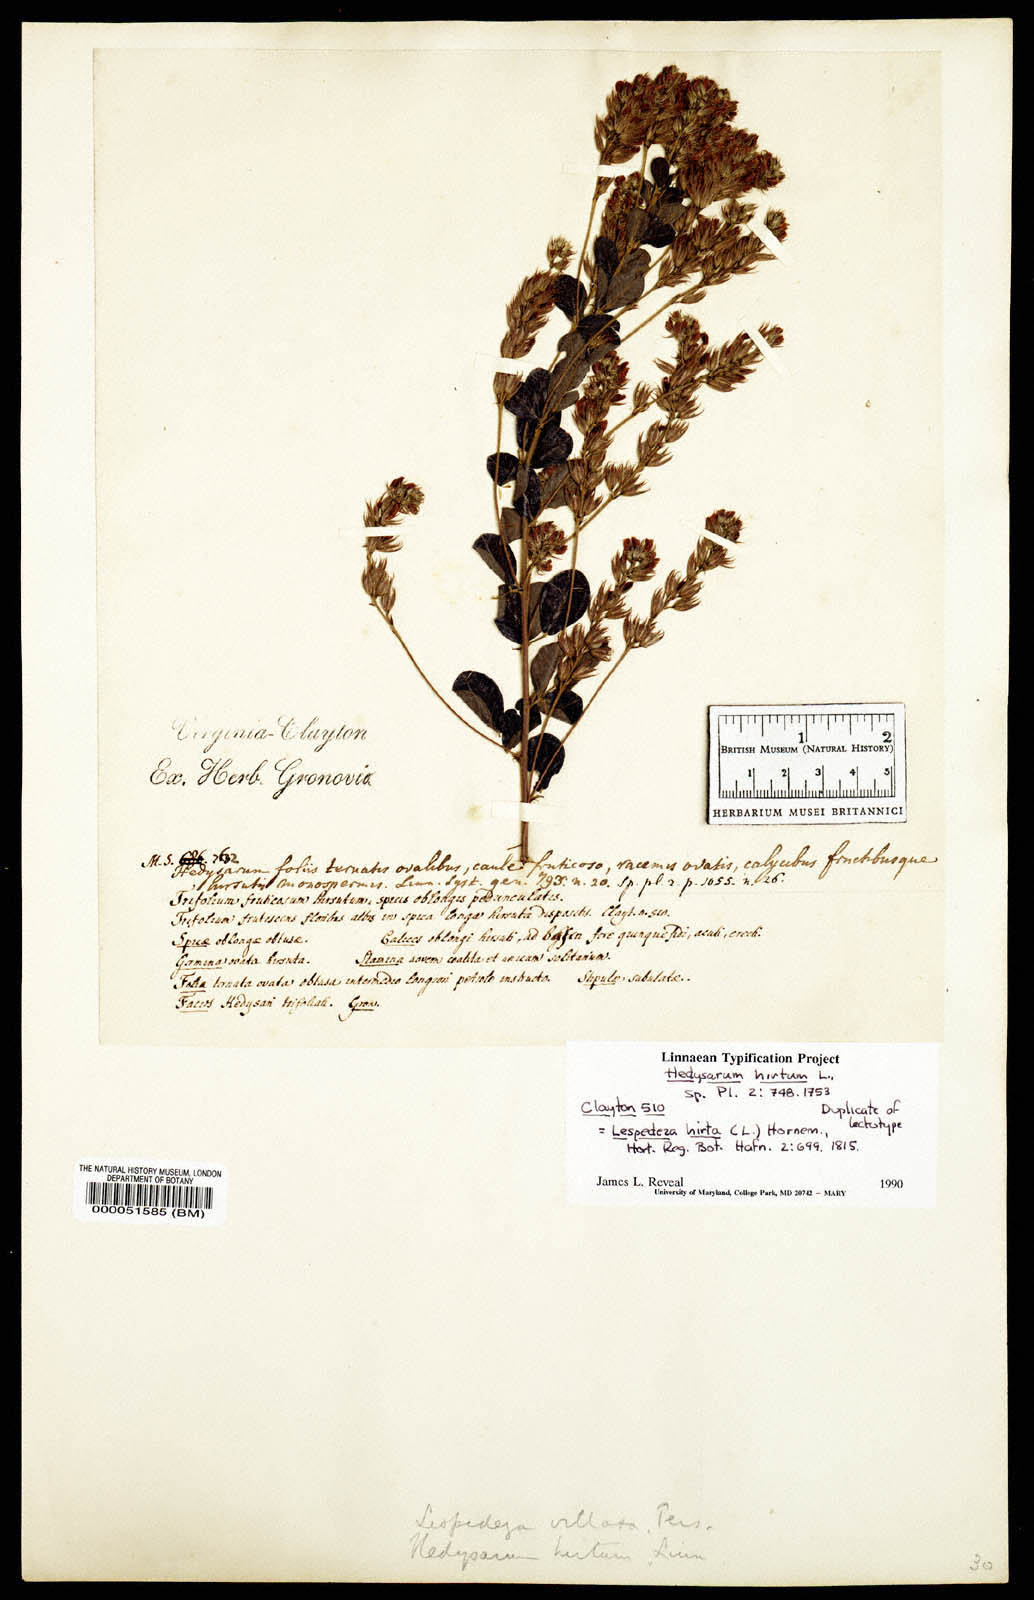 Virginia-Clayton
Ex. Herb. Gronovia
M.S. 686. 762
Hedysarum foliis ternatis ovalibus, caule fruticoso, racemis ovatis, calycibus fructibusque
hirsutis monospermis. Linn. Syst. gen. 793. n. 20. Sp. pl. 2. p. 1055. n. 26.
Trifolium fruticosum hirsutum, spicis oblongis pedunculatis.
Trifolium frutescens floribus albis in spica longa hirsuta dispositis. Clayt. n. 510.
Spicæ oblongæ obtusæ. Calices oblongi hirsuti, ad basin fere quinquefidi, acuti, erecti.
Germina ovata hirsuta. Stamina novem coalita et unicum solitarium.
Folia ternata ovata obtusa intermedio longiori petiolo instructo. Stipulæ subulatæ.
Facies Hedysari trifoliati. Gron.
1 2
BRITISH MUSEUM (NATURAL HISTORY)
1 2 3 4 5
HERBARIUM MUSEI BRITANNICI
Linnaean Typification Project
Hedysarum hirtum L.,
Sp. Pl. 2: 748. 1753
Clayton 510 Duplicate of
lectotype
= Lespedeza hirta (L.) Hornem.,
Hort. Reg. Bot. Hafn. 2: 699. 1815.
James L. Reveal 1990
University of Maryland, College Park, MD 20742 – MARY
THE NATURAL HISTORY MUSEUM, LONDON
DEPARTMENT OF BOTANY
000051585 (BM)
Lespedeza villosa, Pers.
Hedysarum hirtum, Linn
30